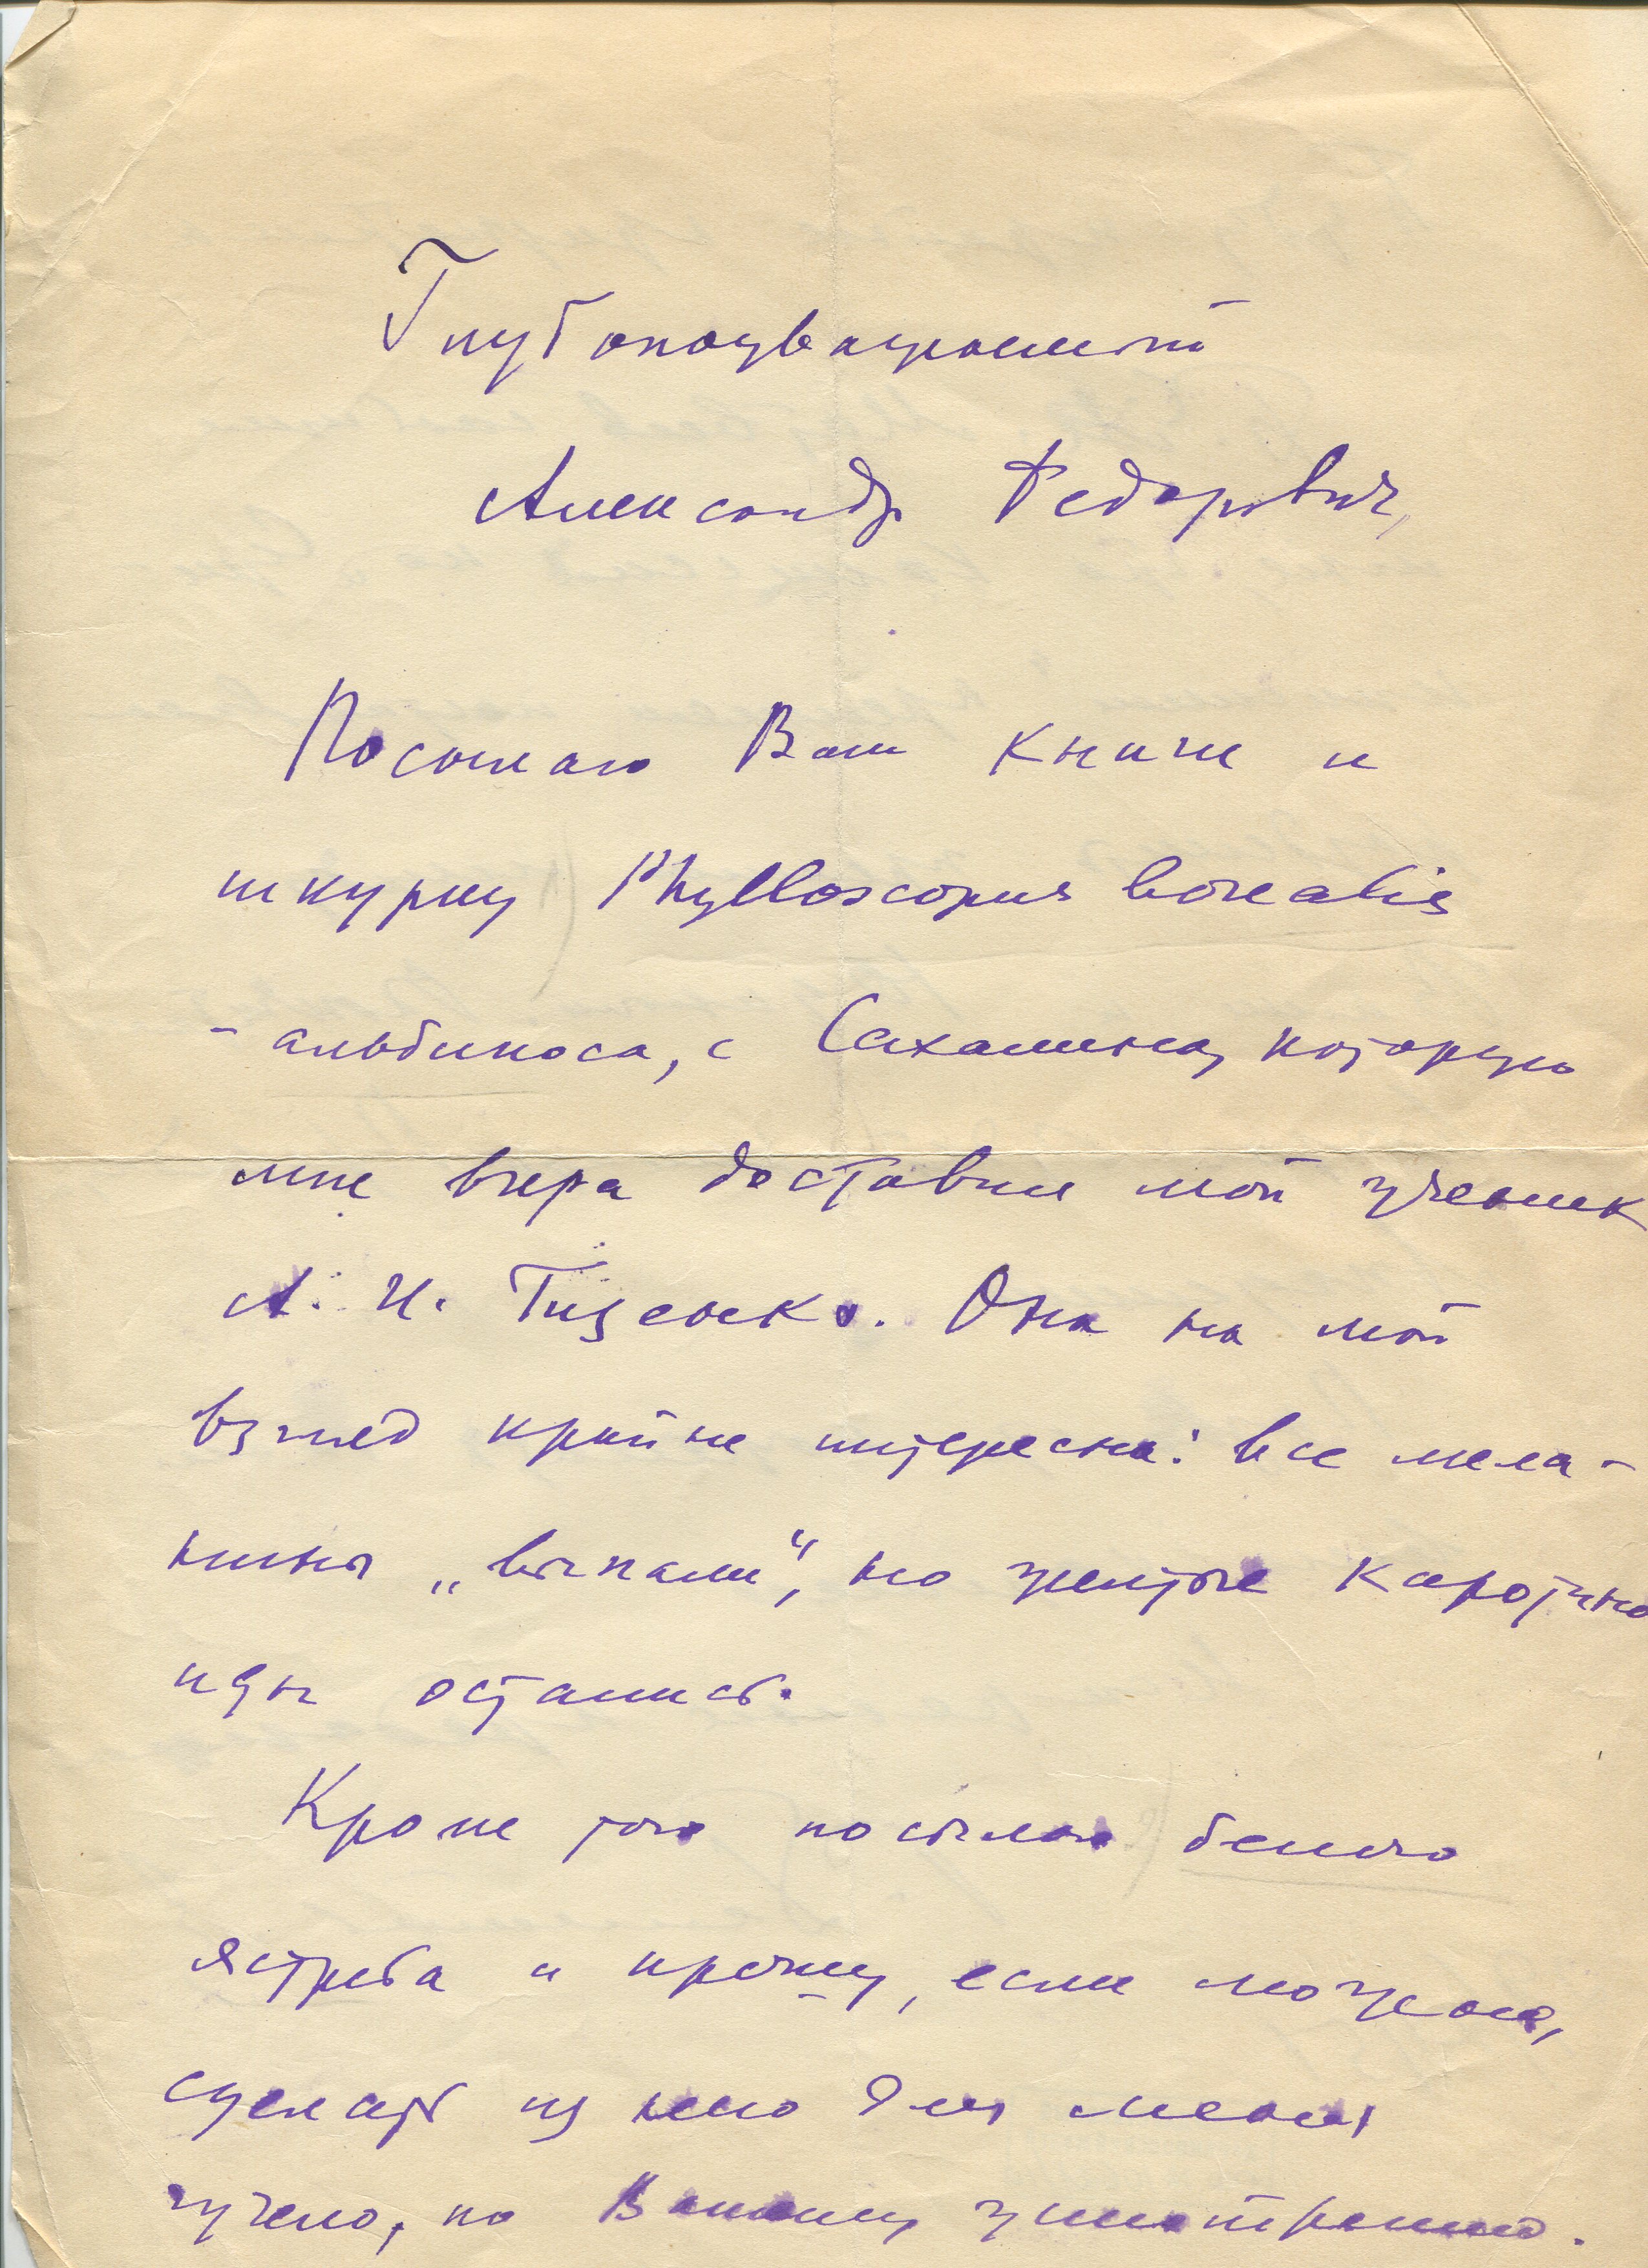 Глубокоуважаемый
Александр Федорович,
Посылаю Вам книги и
шкурку Phylloscopus borealis
- альбиноса, с Сахалина, которую
мне вчера доставил мой ученик
А. И. Гизенко. Она на мой
взгляд крайне интересна: все мела-
нины „выпали“, но желтые каротино
иды остались.
Кроме того посылаю белого
ястреба и прошу, если можно,
сделать из него для меня
чучело, по Вашему усмотрению.